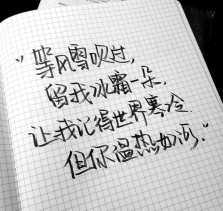 "等风雪吹过,
留我冰霜一朵,
让我记得世界寒冷
但你温热如河."